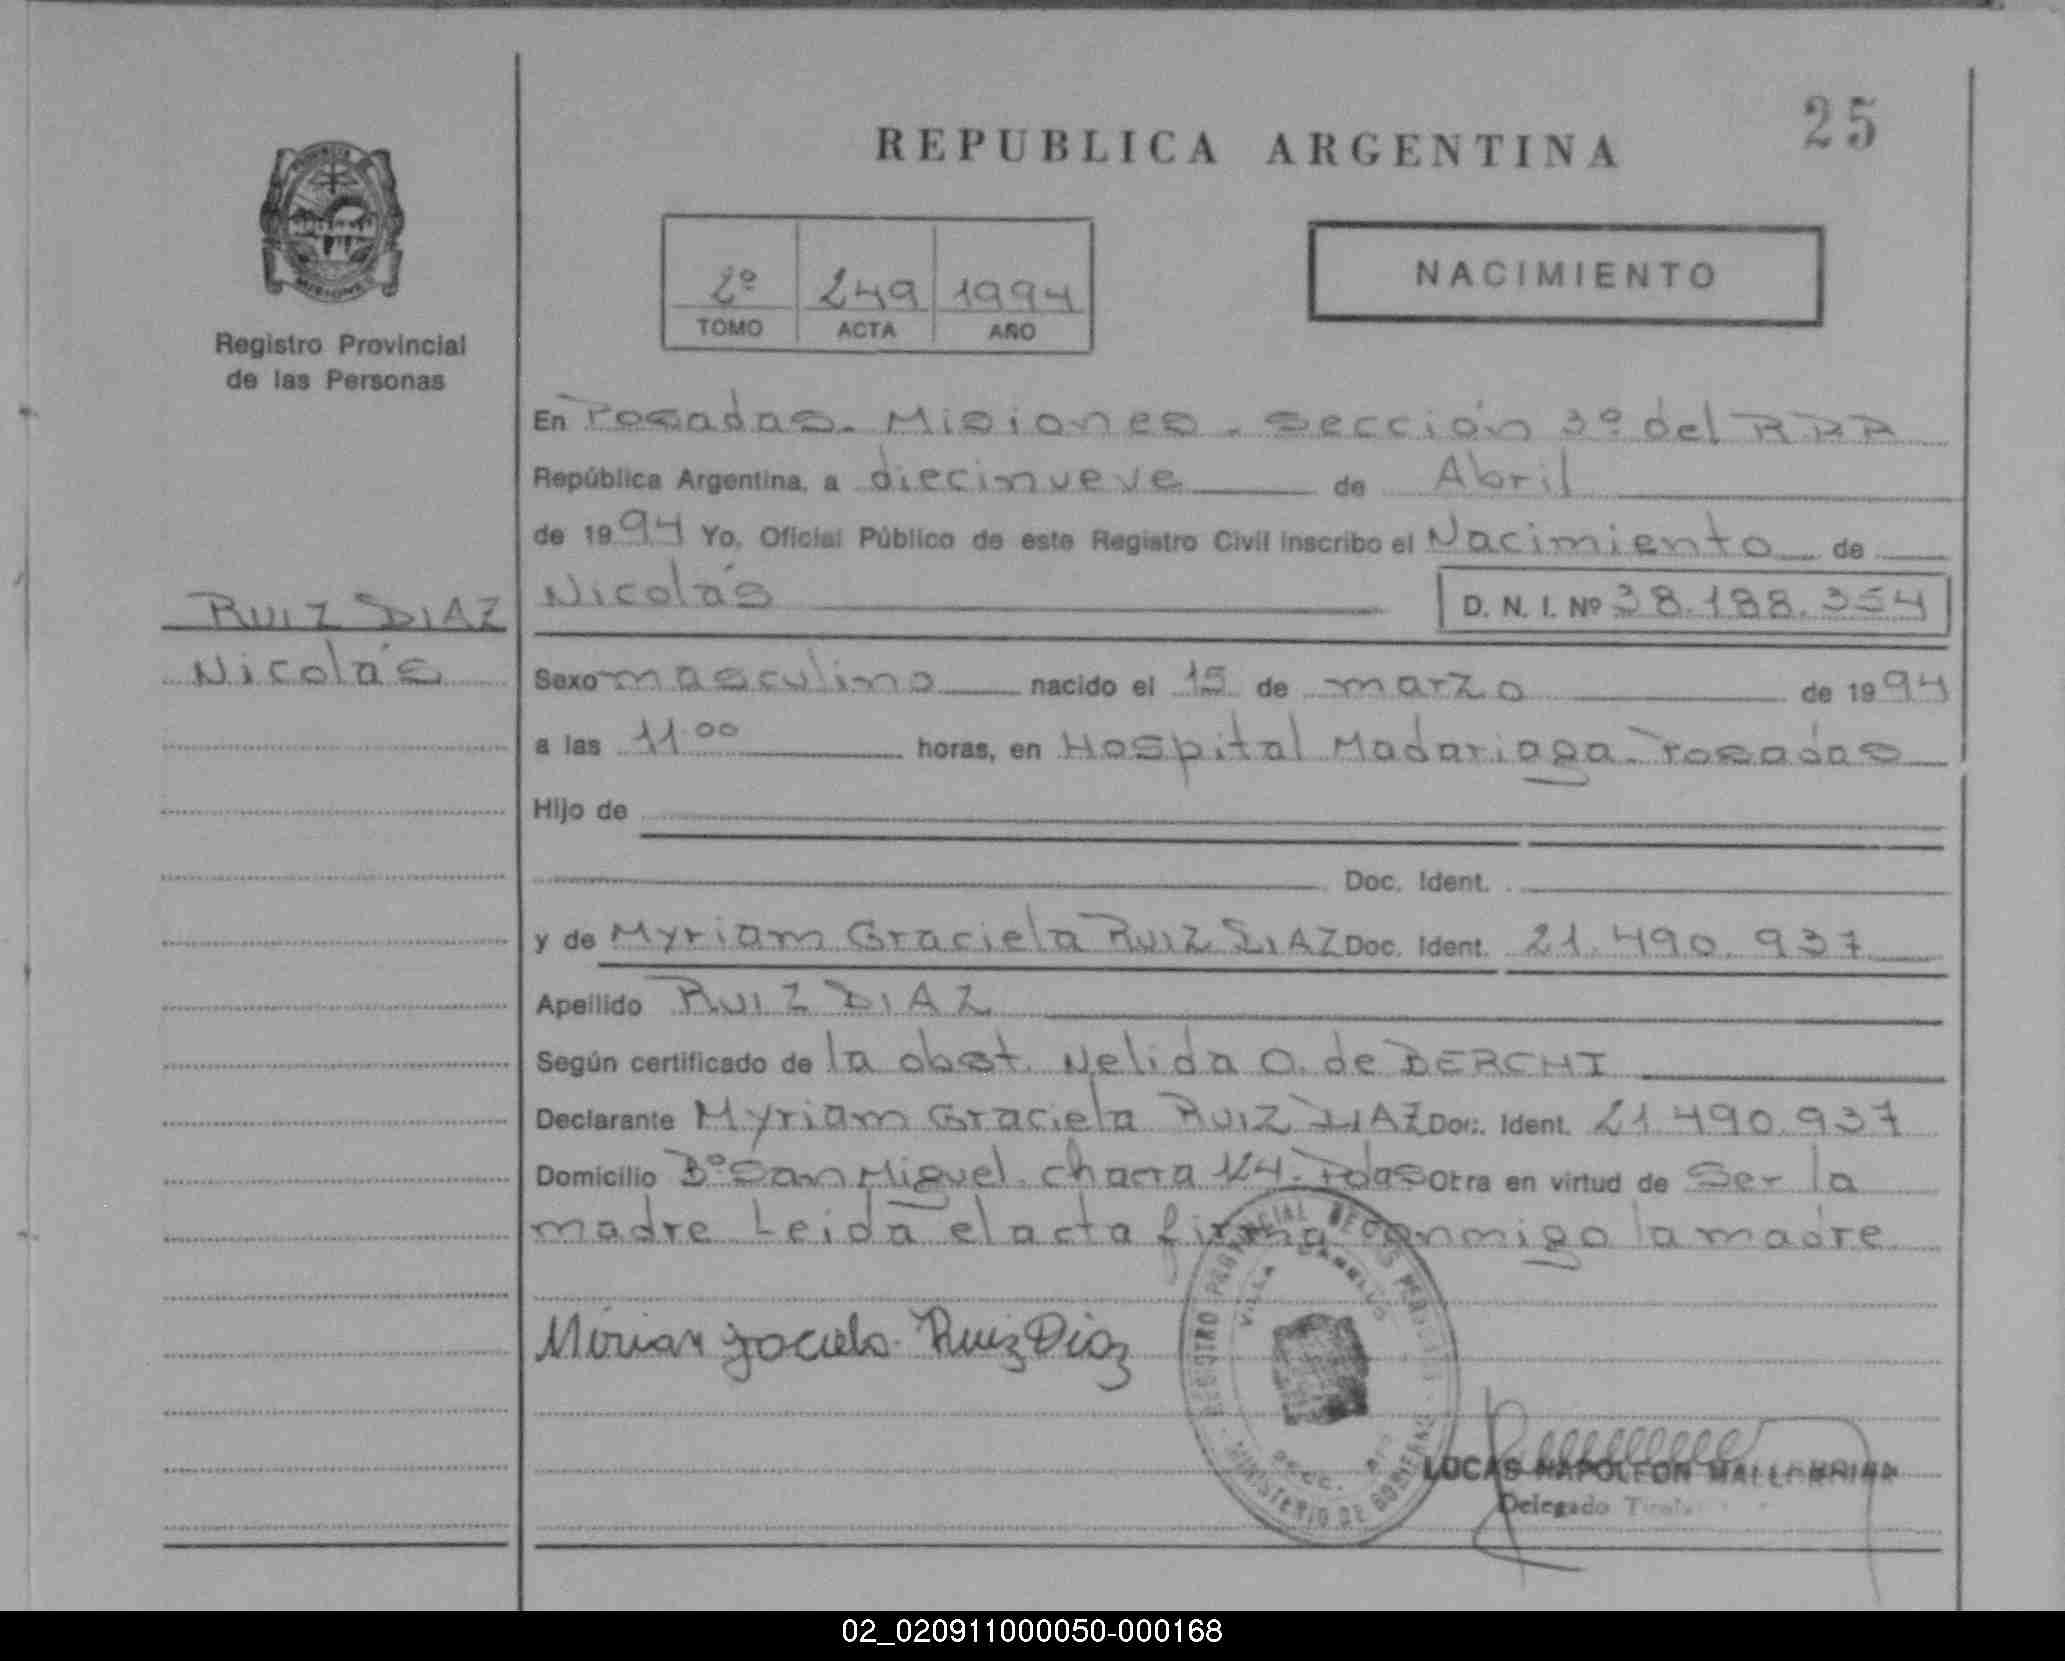 25
REPUBLICA ARGENTINA
NACIMIENTO
2º 249 1994
TOMO ACTA AÑO
PROVINCIA
MISIONES
Registro Provincial
de las Personas
RUIZ DIAZ
Nicolás
En Posadas. Misiones. Sección 3º del RPP
República Argentina, a diecinueve de Abril
de 1994 Yo, Oficial Público de este Registro Civil inscribo el Nacimiento de
Nicolás D. N. I. Nº 38.188.354
Sexo masculino nacido el 15 de marzo de 1994
a las 11.00 horas, en Hospital Madariaga. Posadas
Hijo de
Doc. Ident.
y de Myriam Graciela RUIZ DIAZ Doc. Ident. 21.490.937
Apellido RUIZ DIAZ
Según certificado de la obst. Nelida O. de BERCHI
Declarante Myriam Graciela RUIZ DIAZ Doc. Ident. 21.490.937
Domicilio Bº San Miguel. chacra 124. Pdas Otra en virtud de Ser la
madre Leida el acta firma conmigo la madre
REGISTRO PROVINCIAL DE LAS PERSONAS
VILLA
MINISTERIO DE GOBIERNO
Ruiz Diaz
LUCAS NAPOLEON
Delegado Titular
02_020911000050-000168